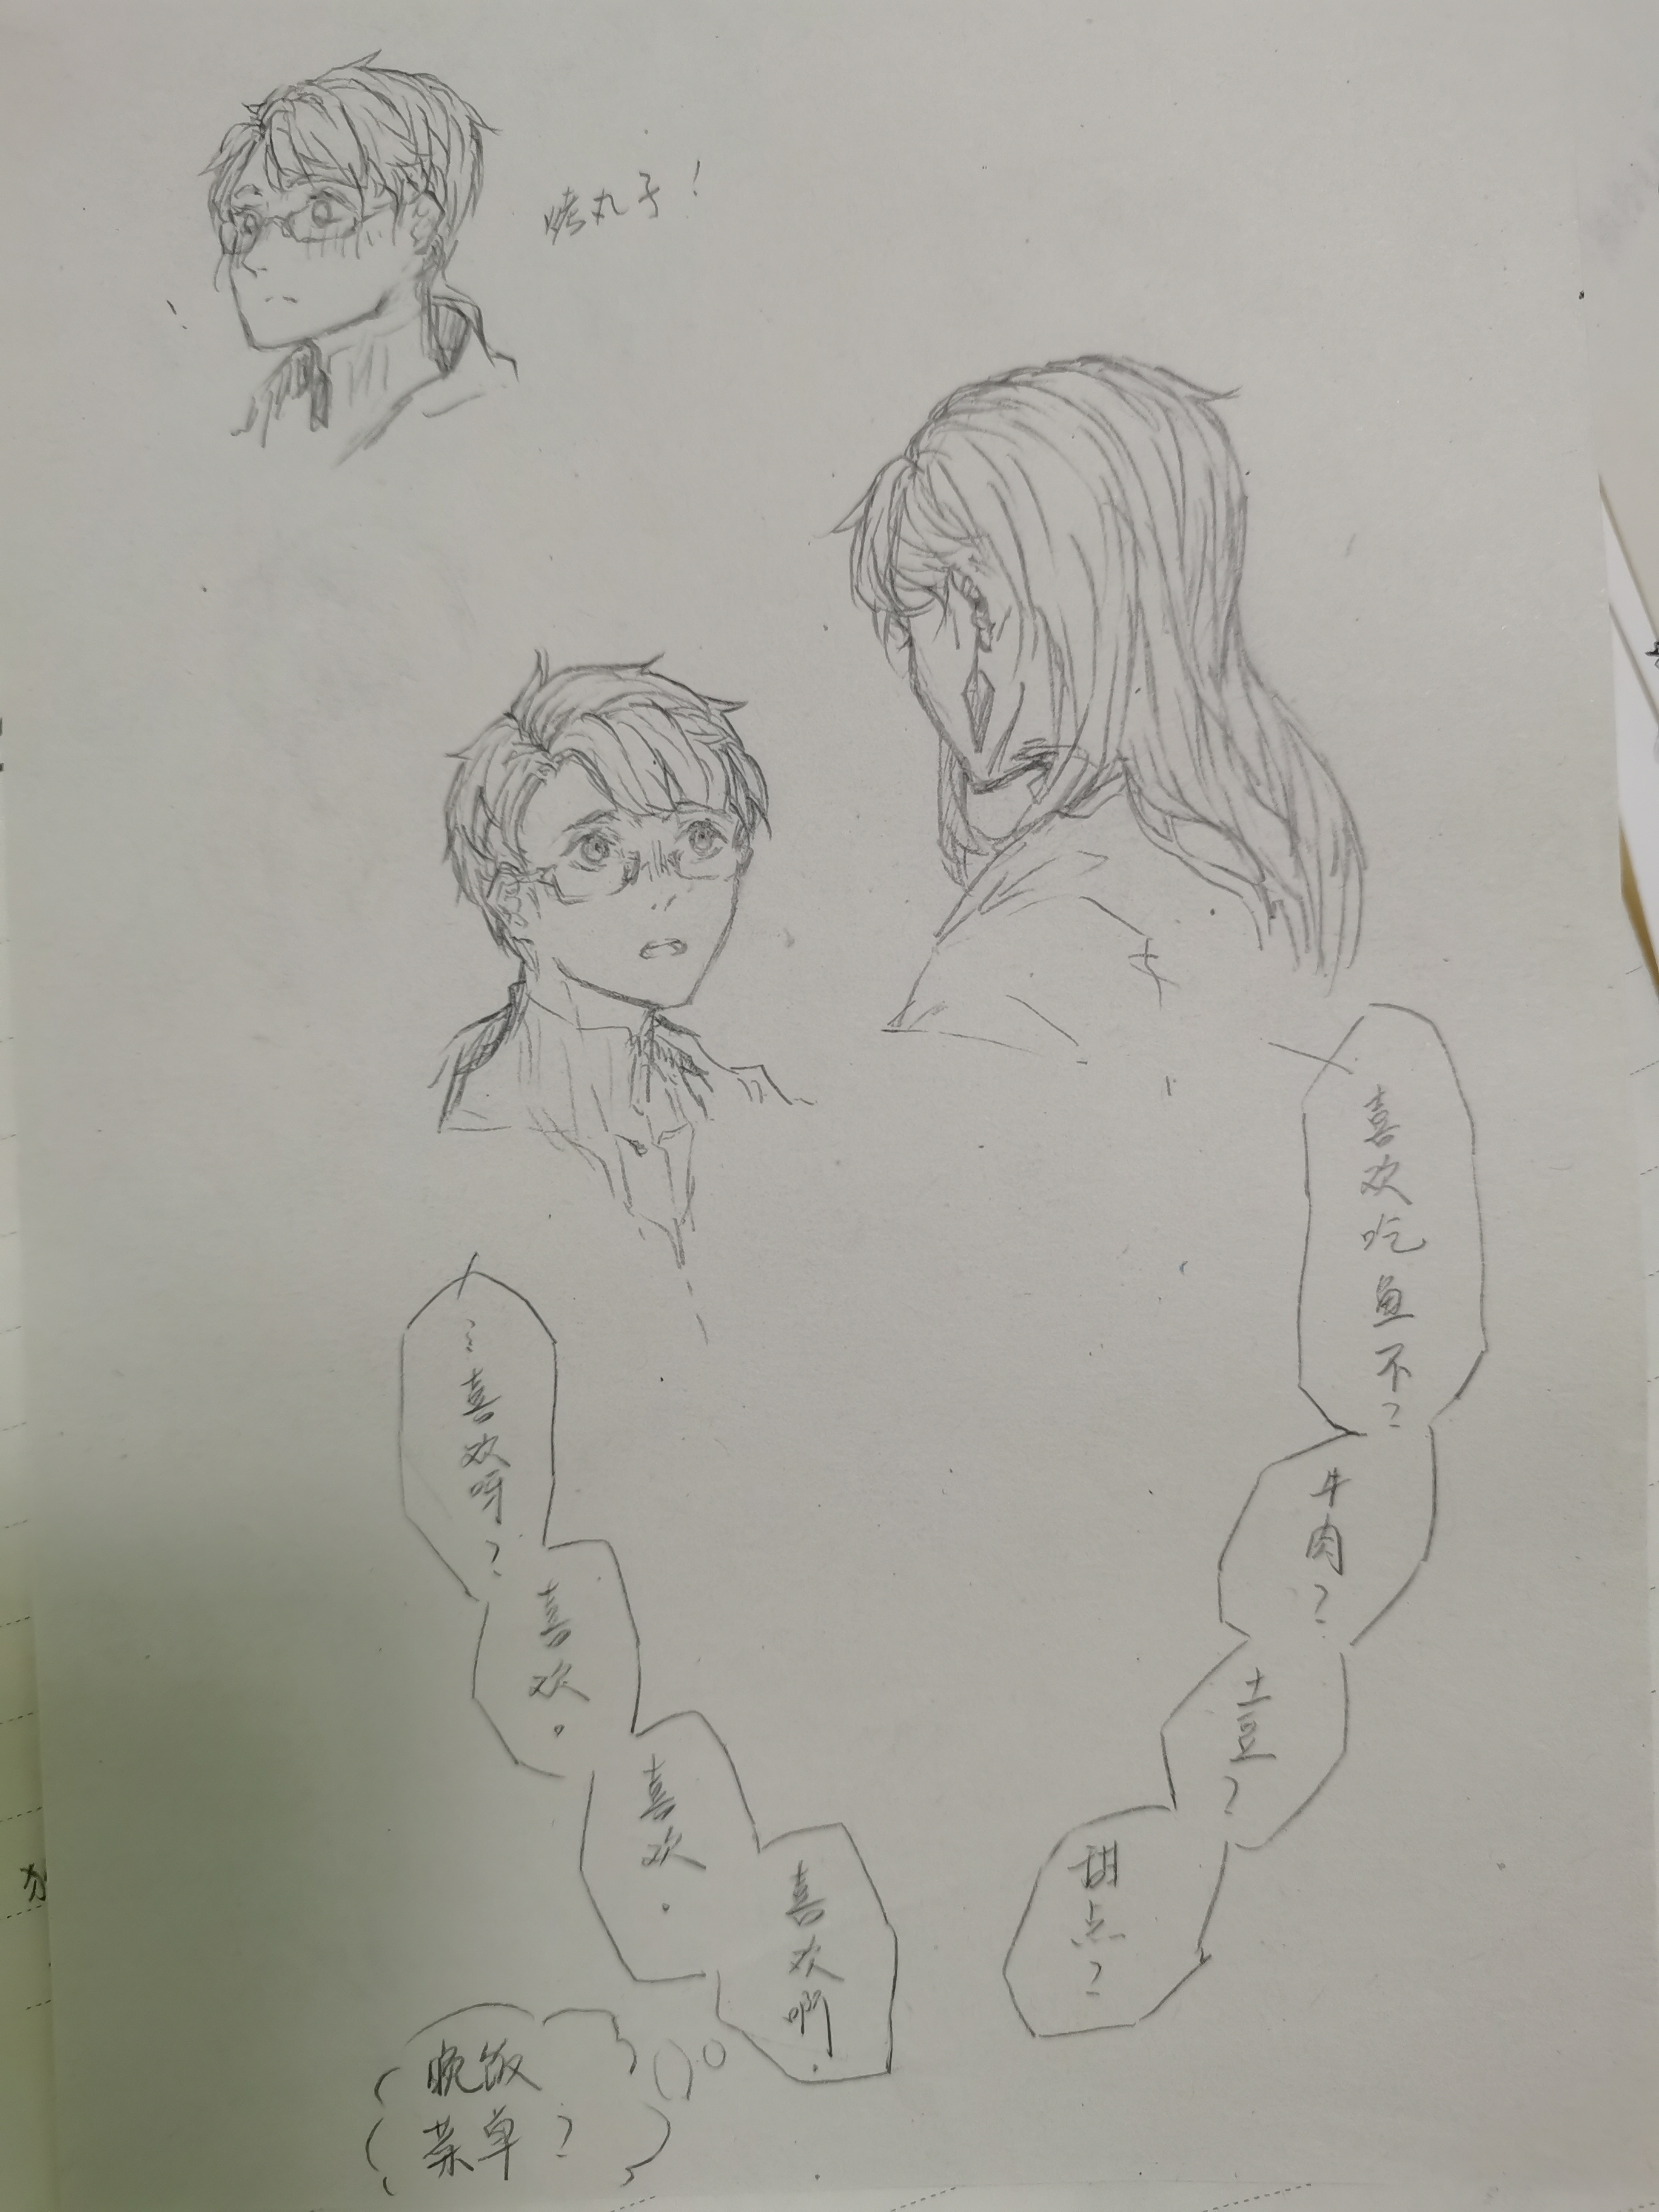 烤丸子！
喜欢吃鱼不？
牛肉？
土豆？
甜点？
…喜欢呀？
喜欢。
喜欢。
喜欢啊.
晚饭
菜单？